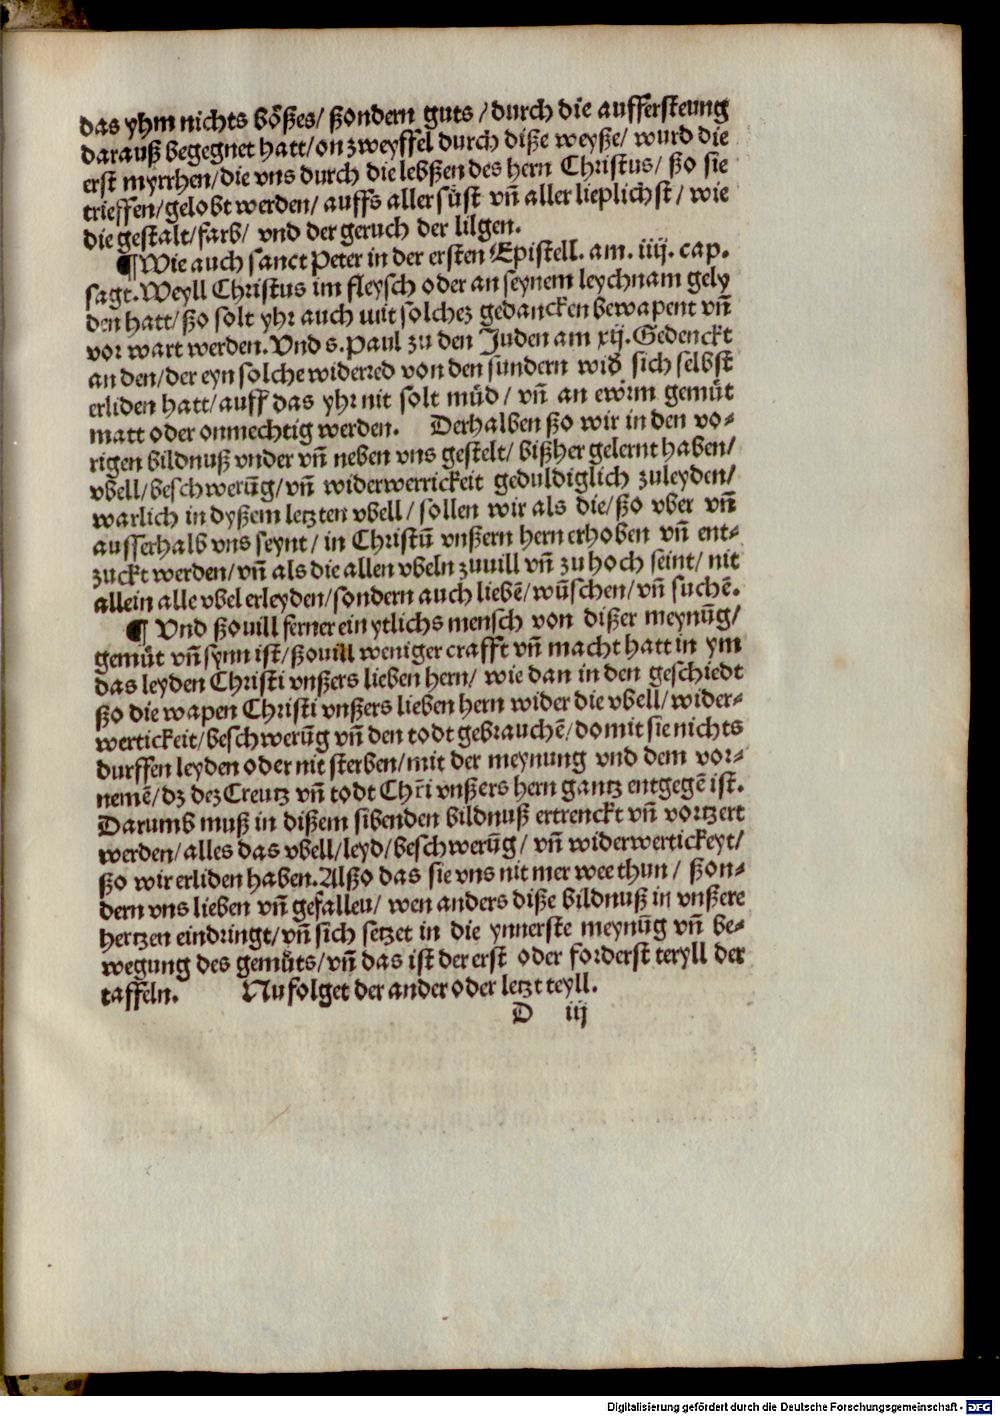 das yhm nichts bößes/ ßondern guts / durch die aufferſteung
darauß begegnet hatt/ on zweyffel durch diße weyße/ wurd die
erſt myrrhen/ die vns durch die lebßen des hern Chriſtus/ ßo ſie
trieffen/ gelobt werden/ auffs aller ſüſt vñ aller lieplichſt / wie
die geſtalt/ farb/ vnd der geruch der lilgen.
¶ Wie auch ſanct Peter in der erſten Epiſtell. am. iiij. cap.
ſagt. Weyll Chriſtus im fleyſch oder an ſeynem leychnam gely
den hatt/ ßo ſolt yhr auch mit ſolchez gedancken bewapent vñ
vor wart werden. Vnd s. Paul zu den Juden am xij. Gedenckt
an den/ der eyn ſolche widerred von den ſundern wid᷑ ſich ſelbſt
erliden hatt/ auff das yhr nit ſolt müd / vñ an ewrm gemüt
matt oder onmechtig werden. Derhalben ßo wir in den vo-
rigen bildnuß vnder vñ neben vns geſtelt/ bißher gelernt haben/
vbell/ beſchwerūg/ vñ widerwerrickeit geduldiglich zuleyden/
warlich in dyßem letzten vbell / ſollen wir als die/ ßo vber vñ
auſſerhalb vns ſeynt/ in Chriſtū vnßern hern erhoben vñ ent-
zuckt werden/ vñ als die allen vbeln zuuill vñ zu hoch ſeint/ nit
allein alle vbel erleyden/ ſondern auch liebē/ wūſchen/ vñ ſuchē.
¶ Vnd ßouill ferner ein ytlichs menſch von dißer meynūg/
gemüt vñ ſynn iſt/ ßouill weniger crafft vñ macht hatt in ym
das leyden Chriſti vnßers lieben hern/ wie dan in den geſchiedt
ßo die wapen Chriſti vnßers lieben hern wider die vbell/ wider-
wertickeit/ beſchwerūg vñ den todt gebrauchē/ domit ſie nichts
durffen leyden oder nit ſterben/ mit der meynung vnd dem vor-
nemē/ dz dez Creutz vñ todt Chr̄i vnßers hern gantz entgegē iſt.
Darumb muß in dißem ſibenden bildnuß ertrenckt vñ vortzert
werden/ alles das vbell/ leyd/ beſchwerūg / vñ widerwertickeyt/
ßo wir erliden haben. Alßo das ſie vns nit mer wee thun / ßon-
dern vns lieben vñ gefallen/ wen anders diße bildnuß in vnßere
hertzen eindringt/ vñ ſich ſetzet in die ynnerſte meynūg vñ be-
wegung des gemüts/ vñ das iſt der erſt oder forderſt teryll der
taffeln. Nu folget der ander oder letzt teyll.
D iij
Digitalisierung gefördert durch die Deutsche Forschungsgemeinschaft - DFG